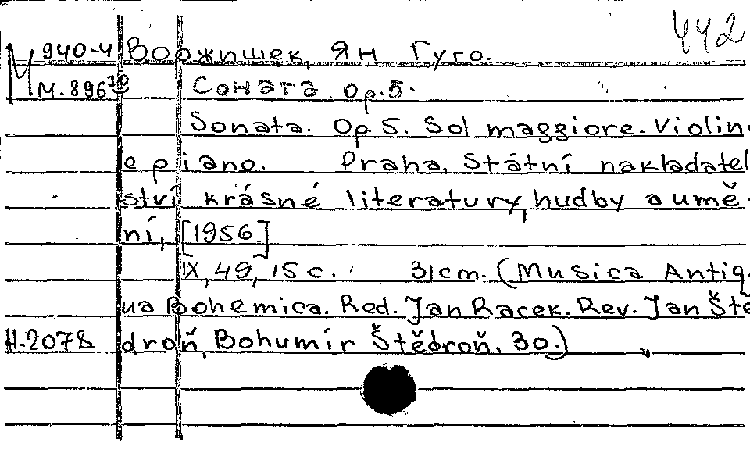 442
М 940-4 Воржишек, Ян Гуго.
М.896 70 Соната. Op.5.
Sonata. Op 5. Sol maggiore. Violin
e piano. Praha, Státní nakladatel
ství krásné literatury, hudby a umě-
ní, [1956]
IX, 49, 15 с. 31 cm. (Musica Antiq-
ua Bohemica. Red. Jan Racek. Rev. Jan Ště
Н.2078 droň, Bohumír Štědroň, 30.)